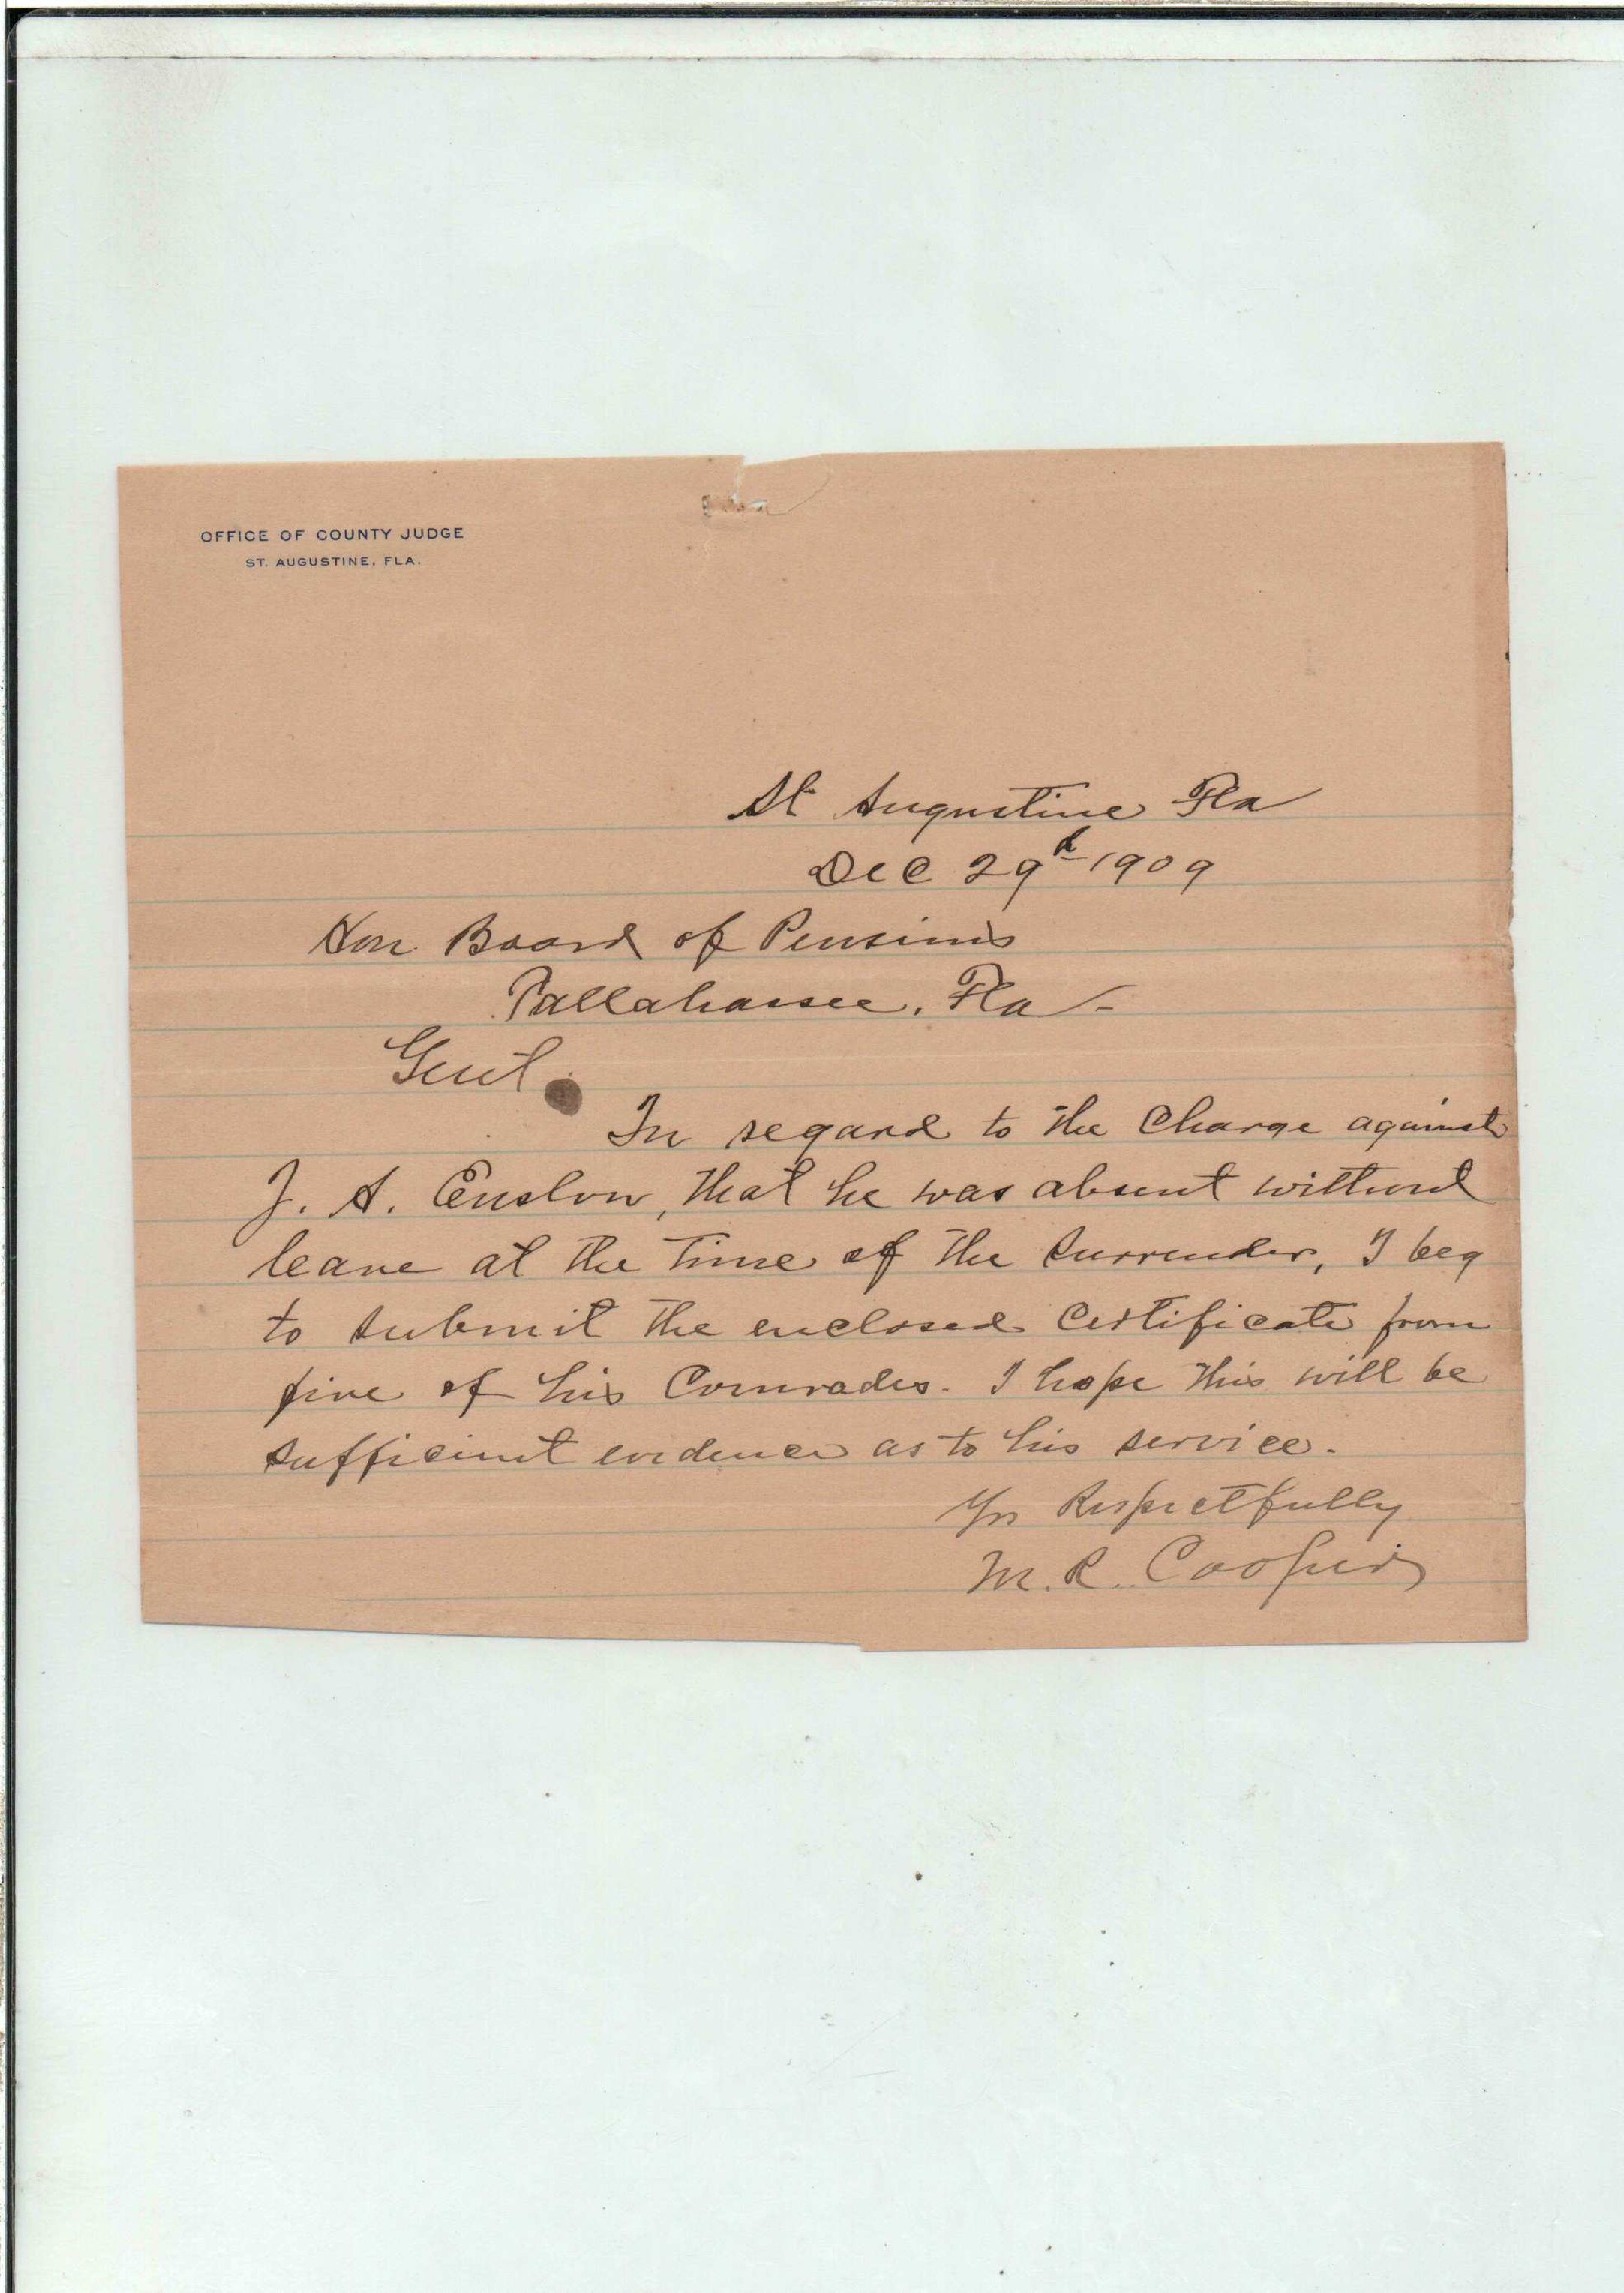 OFFICE OF COUNTY JUDGE
ST. AUGUSTINE, FLA.
St Augustine Fla
Dec 29th 1909
Hon Board of Pensions
Tallahassee, Fla -
Gent.
In regard to the Charge against
J. A. Enslow, that he was absent without
leave at the time of the surrender, I beg
to submit the enclosed certificate from
five of his Comrades. I hope this will be
sufficient evidence as to his service.
Yrs Respectfully
M. R. Cooper